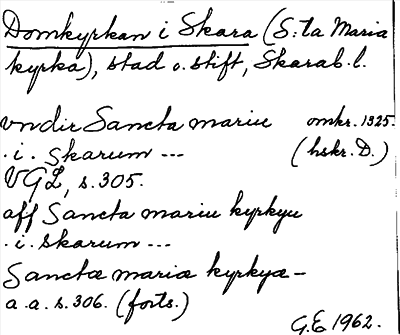 Domkyrkan i Skara (S:ta Maria
kyrka), stad o. stift, Skarab.l.
vndir Sancta mariu omkr. 1325.
.i. Skarum --- (hskr. D.)
VGL, s. 305.
aff Sancta mariu kyrkyu
.i. skarum ---
Sanctæ mariæ kyrkyæ -
a.a. s. 306. (forts.)
G.E 1962.